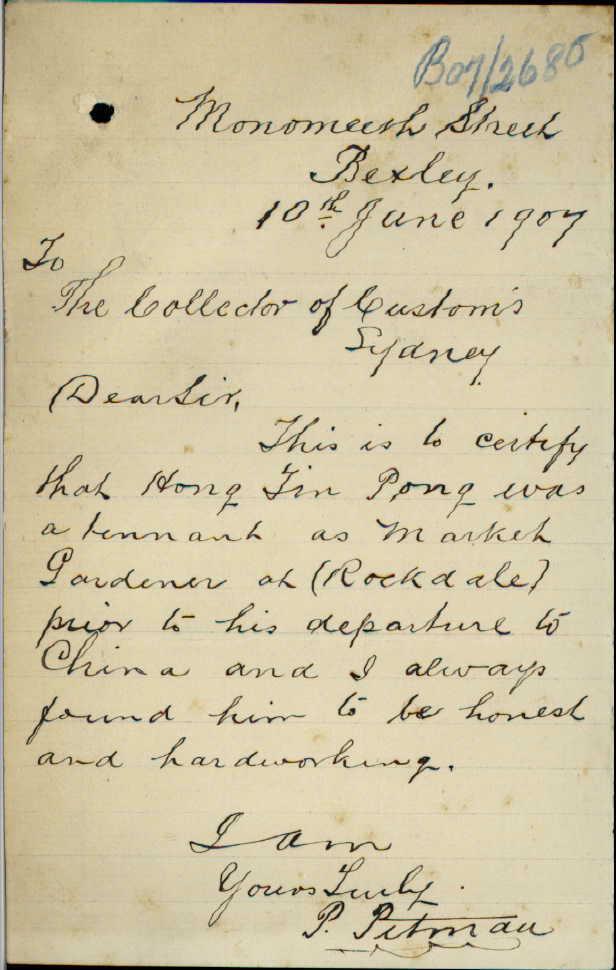 B07/2685
Monomeeth Street
Bexley.
10th June 1907
To
The Collector of Customs
Sydney
Dear Sir,
This is to certify
that Hong Tin Pong was
a tennant as Market
Gardener at (Rockdale)
prior to his departure to
China and I always
found him to be honest
and hardworking.
I am
Yours Truly
P. Pitman